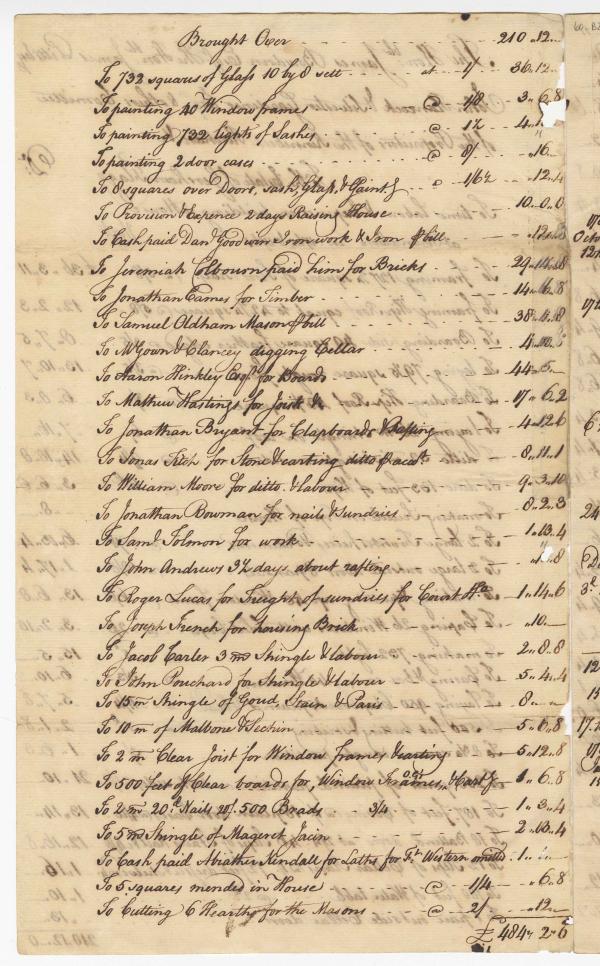 Brought Over - - - 210 " 12 "
To 732 squares of Glass 10 by 8 sett - at - 1/ - 36 " 12 "
To painting 40 Window frames - @ - 1/8 3 " 6 " 8
To painting 732 lights of Sashes - @ - 1½ 4 "
To painting 2 door cases - @ - 8/ - " 16 "
To 8 squares over Doors, sash, Glass, & Paint.g 1/6½ - " 12 " 4
To Provision & Expence 2 days Raising House - 10 " 0 " 0
To Cash paid Dan.l Goodwin Iron work & Iron ⅌ bill - " 12 "
To Jeremiah Colbourn paid him for Bricks - 29 " 14 " 8
To Jonathan Eames for Timber - 14 " 6 " 8
To Samuel Oldham Mason ⅌ bill - 38 " " 8
To McGown & Clancey digging Cellar - 4 " 10 "
To Aaron Hinkley Esq.r for Boards - 44 " 5 -
To Mathew Hastings for Joist & - 17 " 6 " 2
To Jonathan Bryant for Clapboards & Rafting - 4 " 12 " 6
To Jonas Fitch for Stone & carting ditto ⅌ acct - 8 " 11 " 1
To William Moore for ditto & labour - 9 " 3 " 10
To Jonathan Bowman for nails & sundries - 8 " 2 " 3
To Sam.l Tolmon for work - 1 " 13 " 4
To John Andrews 3½ days about rafting - " 8
To Roger Lucas for Freight of sundries for Court Ho. - 1 " 14 " 6
To Joseph French for housing Brick - " 10 " -
To Jacob Carler 3 m Shingle & labour - 2 " 8 " 8
To John Pouchard for Shingle & labour - 5 " 4 " 4
To 15 m Shingle of Goud, Stain & Paris - 8 " "
To 10 m of Malbone & Pechin - 5 " 6 " 8
To 2 m Clear Joist for Window frames & carting - 5 " 12 " 8
To 500 feet of Clear boards for, Window Frames, & Cart.g 1 " 6 " 8
To 2 m 20.d Nails 20/. 500 Brads - 3/4 - 1 " 3 " 4
To 5 m Shingle of Mageret Jacin - 2 " 13 " 4
To Cash paid Abiather Kendall for Laths for F.t Western omitted 1 "
To 5 squares mended in House - @ - 1/4 - " 6 " 8
To Cutting 6 Hearths for the Masons - @ - 2/ - " 12 "
£ 484 " 2 " 6